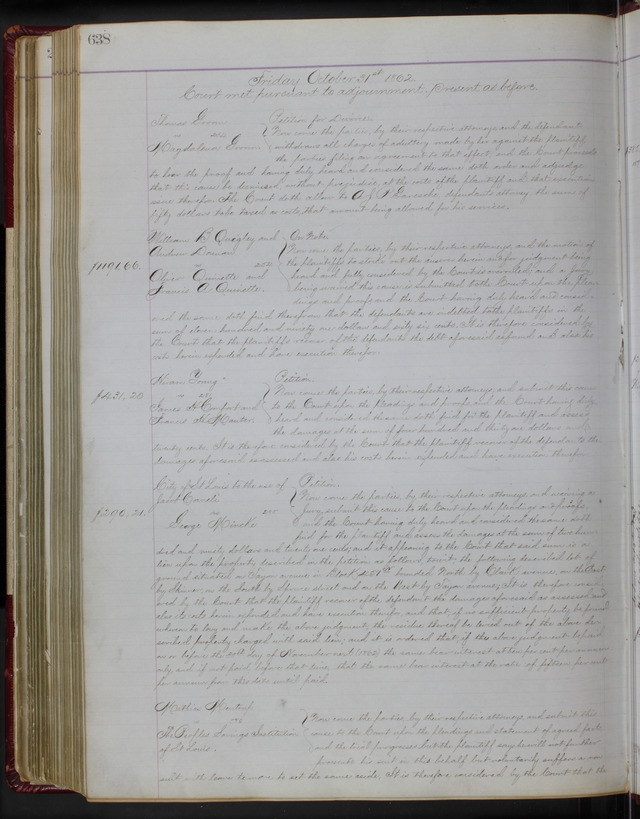 638
Friday October 31st 1862
Court met pursuant to adjournment, Present as before.
Petition for Divorce.
vs
Now come the parties, by their respective attorneys and the defendant
Magdalena
withdraws all charges of adultery made by her against the plaintiff,
the parties filing an agreement to that effect, and the Court proceeds
to hear the proof and having duly heard and considered the same doth order and adjudge
that this cause be dismissed, without prejudice, at the costs of the plaintiff and that execution
issue therefor. The Court doth allow to defendants attorney the sum of
fifty dollars to be taxed as costs, that amount being allowed for his services.
William B Quigley and
On Note.
Andrew
Now come the parties, by their respective attorneys, and the motion of
$1191.66.
vs
the plaintiffs to strike out the answer herein and for judgment being
and
heard and fully considered by the Court is overruled, and a jury
Francis A.
being waived this cause is submitted to the Court upon the plea-
dings and proofs and the Court having duly heard and consider-
ed the same doth find therefrom that the defendants are indebted to the plaintiffs in the
sum of eleven hundred and ninety one dollars and sixty six cents. It is therefore considered by
the Court that the plaintiffs recover of the defendants the debt aforesaid as found and also their
costs herein expended and have execution therefor.
Hiram Young
Petition.
$431.20
vs
Now come the parties, by their respective attorneys, and submit this cause
James
and
to the Court upon the pleadings and proofs and the Court having duly
Francis
heard and considered the same doth find for the plaintiff and assess
the damages at the sum of four hundred and thirty one dollars and
twenty cents. It is therefore considered by the Court that the plaintiff recover of the defendants the
damages aforesaid as assessed and also his costs herein expended and have execution therefor.
City of St Louis to the use of
Petition.
Now come the parties, by their respective attorneys and waiving a
$290.21.
vs
jury, submit this cause to the Court upon the pleadings and proofs,
George
and the Court having duly heard and considered the same doth
find for the plaintiff and assess the damages at the sum of two hun-
dred and ninety dollars and twenty one cents; and it appearing to the Court that said sum is a
lien upon the property described in the petition as follows, towit: the following described lot of
ground situated on avenue in Block bounded North by Clark avenue, on the East
by on the South by Spruce street and on the West by avenue; It is therefore consid-
ered by the Court that the plaintiff recover of the defendant the damages aforesaid as assessed and
also its costs herein expended, and have execution therefor, and that, if no sufficient property be found
whereon to levy and make the above judgment, the residue thereof be levied out of the above de-
scribed property charged with said lien; and it is ordered that if the above judgment be paid
on or before the day of November next (1862) the same bear interest at ten per cent per annum
only, and if not paid before that time, that the same bear interest at the rate of fifteen per cent
per annum from this date until paid.
vs
Now come the parties, by their respective attorneys and submit this
The Peoples Savings Institution
cause to the Court upon the pleadings and statement of agreed facts
of St Louis.
and the trial progresses, but the plaintiff says he will not further
prosecute his suit in this behalf but voluntarily suffers a non
suit with leave to move to set the same aside. It is therefore considered by the Court that the